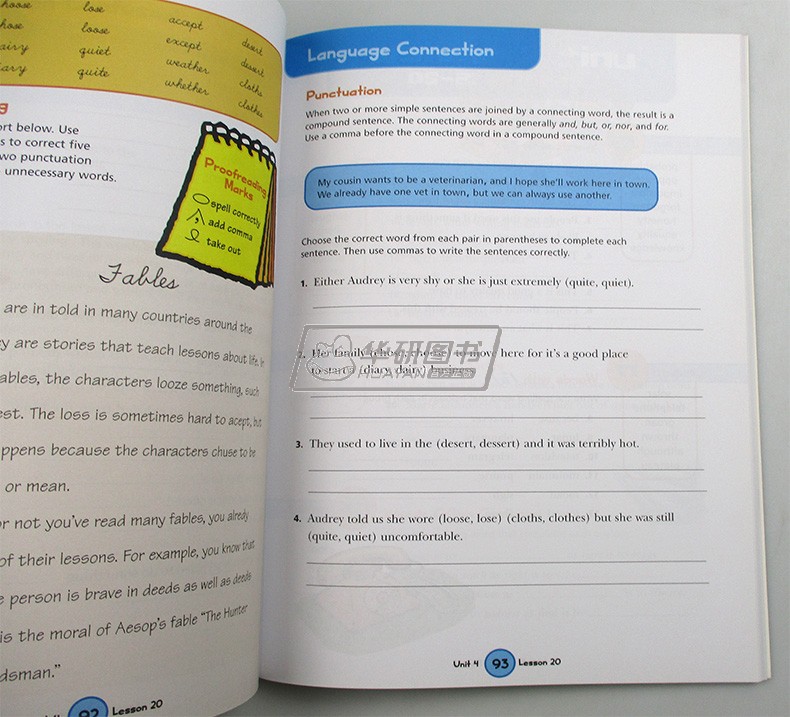 hoose
lose
accept
desert
hose
loose
except
dessert
airy
quiet
weather
cloths
iary
quite
whether
clothes
g
ort below. Use
s to correct five
wo punctuation
unnecessary words.
Proofreading
Marks
spell correctly
add comma
take out
Fables
are in told in many countries around the
ey are stories that teach lessons about life. In
ables, the characters looze something, such
est. The loss is sometimes hard to acept, but
ppens because the characters chuse to be
or mean.
or not you've read many fables, you alredy
of their lessons. For example, you know that
e person is brave in deeds as well as deeds
is the moral of Aesop's fable "The Hunter
dsman."
92 Lesson 20
Language Connection
Punctuation
When two or more simple sentences are joined by a connecting word, the result is a
compound sentence. The connecting words are generally and, but, or, nor, and for.
Use a comma before the connecting word in a compound sentence.
My cousin wants to be a veterinarian, and I hope she'll work here in town.
We already have one vet in town, but we can always use another.
Choose the correct word from each pair in parentheses to complete each
sentence. Then use commas to write the sentences correctly.
1. Either Audrey is very shy or she is just extremely (quite, quiet).
2. Her family (chose, choose) to move here for it's a good place
to start a (diary, dairy) business.
华研图书
HUAYAN
3. They used to live in the (desert, dessert) and it was terribly hot.
4. Audrey told us she wore (loose, lose) (cloths, clothes) but she was still
(quite, quiet) uncomfortable.
Unit 4 93 Lesson 20